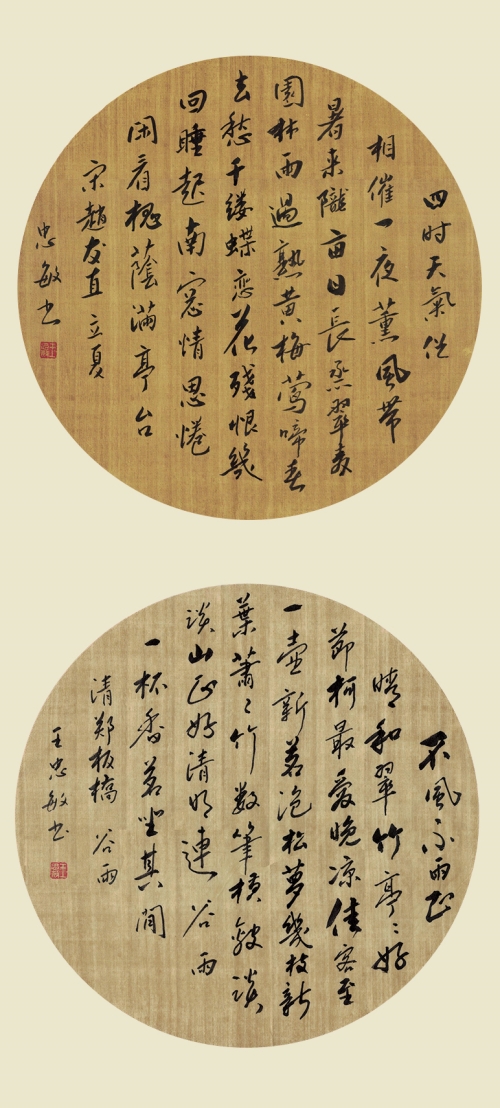 四时天氣促
相催一夜薰風带
暑来隴亩日長烝翠麦
園林雨過熟黄梅莺啼春
去愁千缕蝶恋花殘恨幾
回睡起南窓情思惓
闲看槐蔭满亭台
宋趙友直立夏
忠敏书
不風不雨正
晴和翠竹亭亭好
節柯最爱晚凉佳客至
一壶新茗泡松萝幾枝新
葉萧萧竹数筆横皴淡
淡山正好清明連谷雨
一杯香茗坐其间
清郑板橋谷雨
王忠敏书